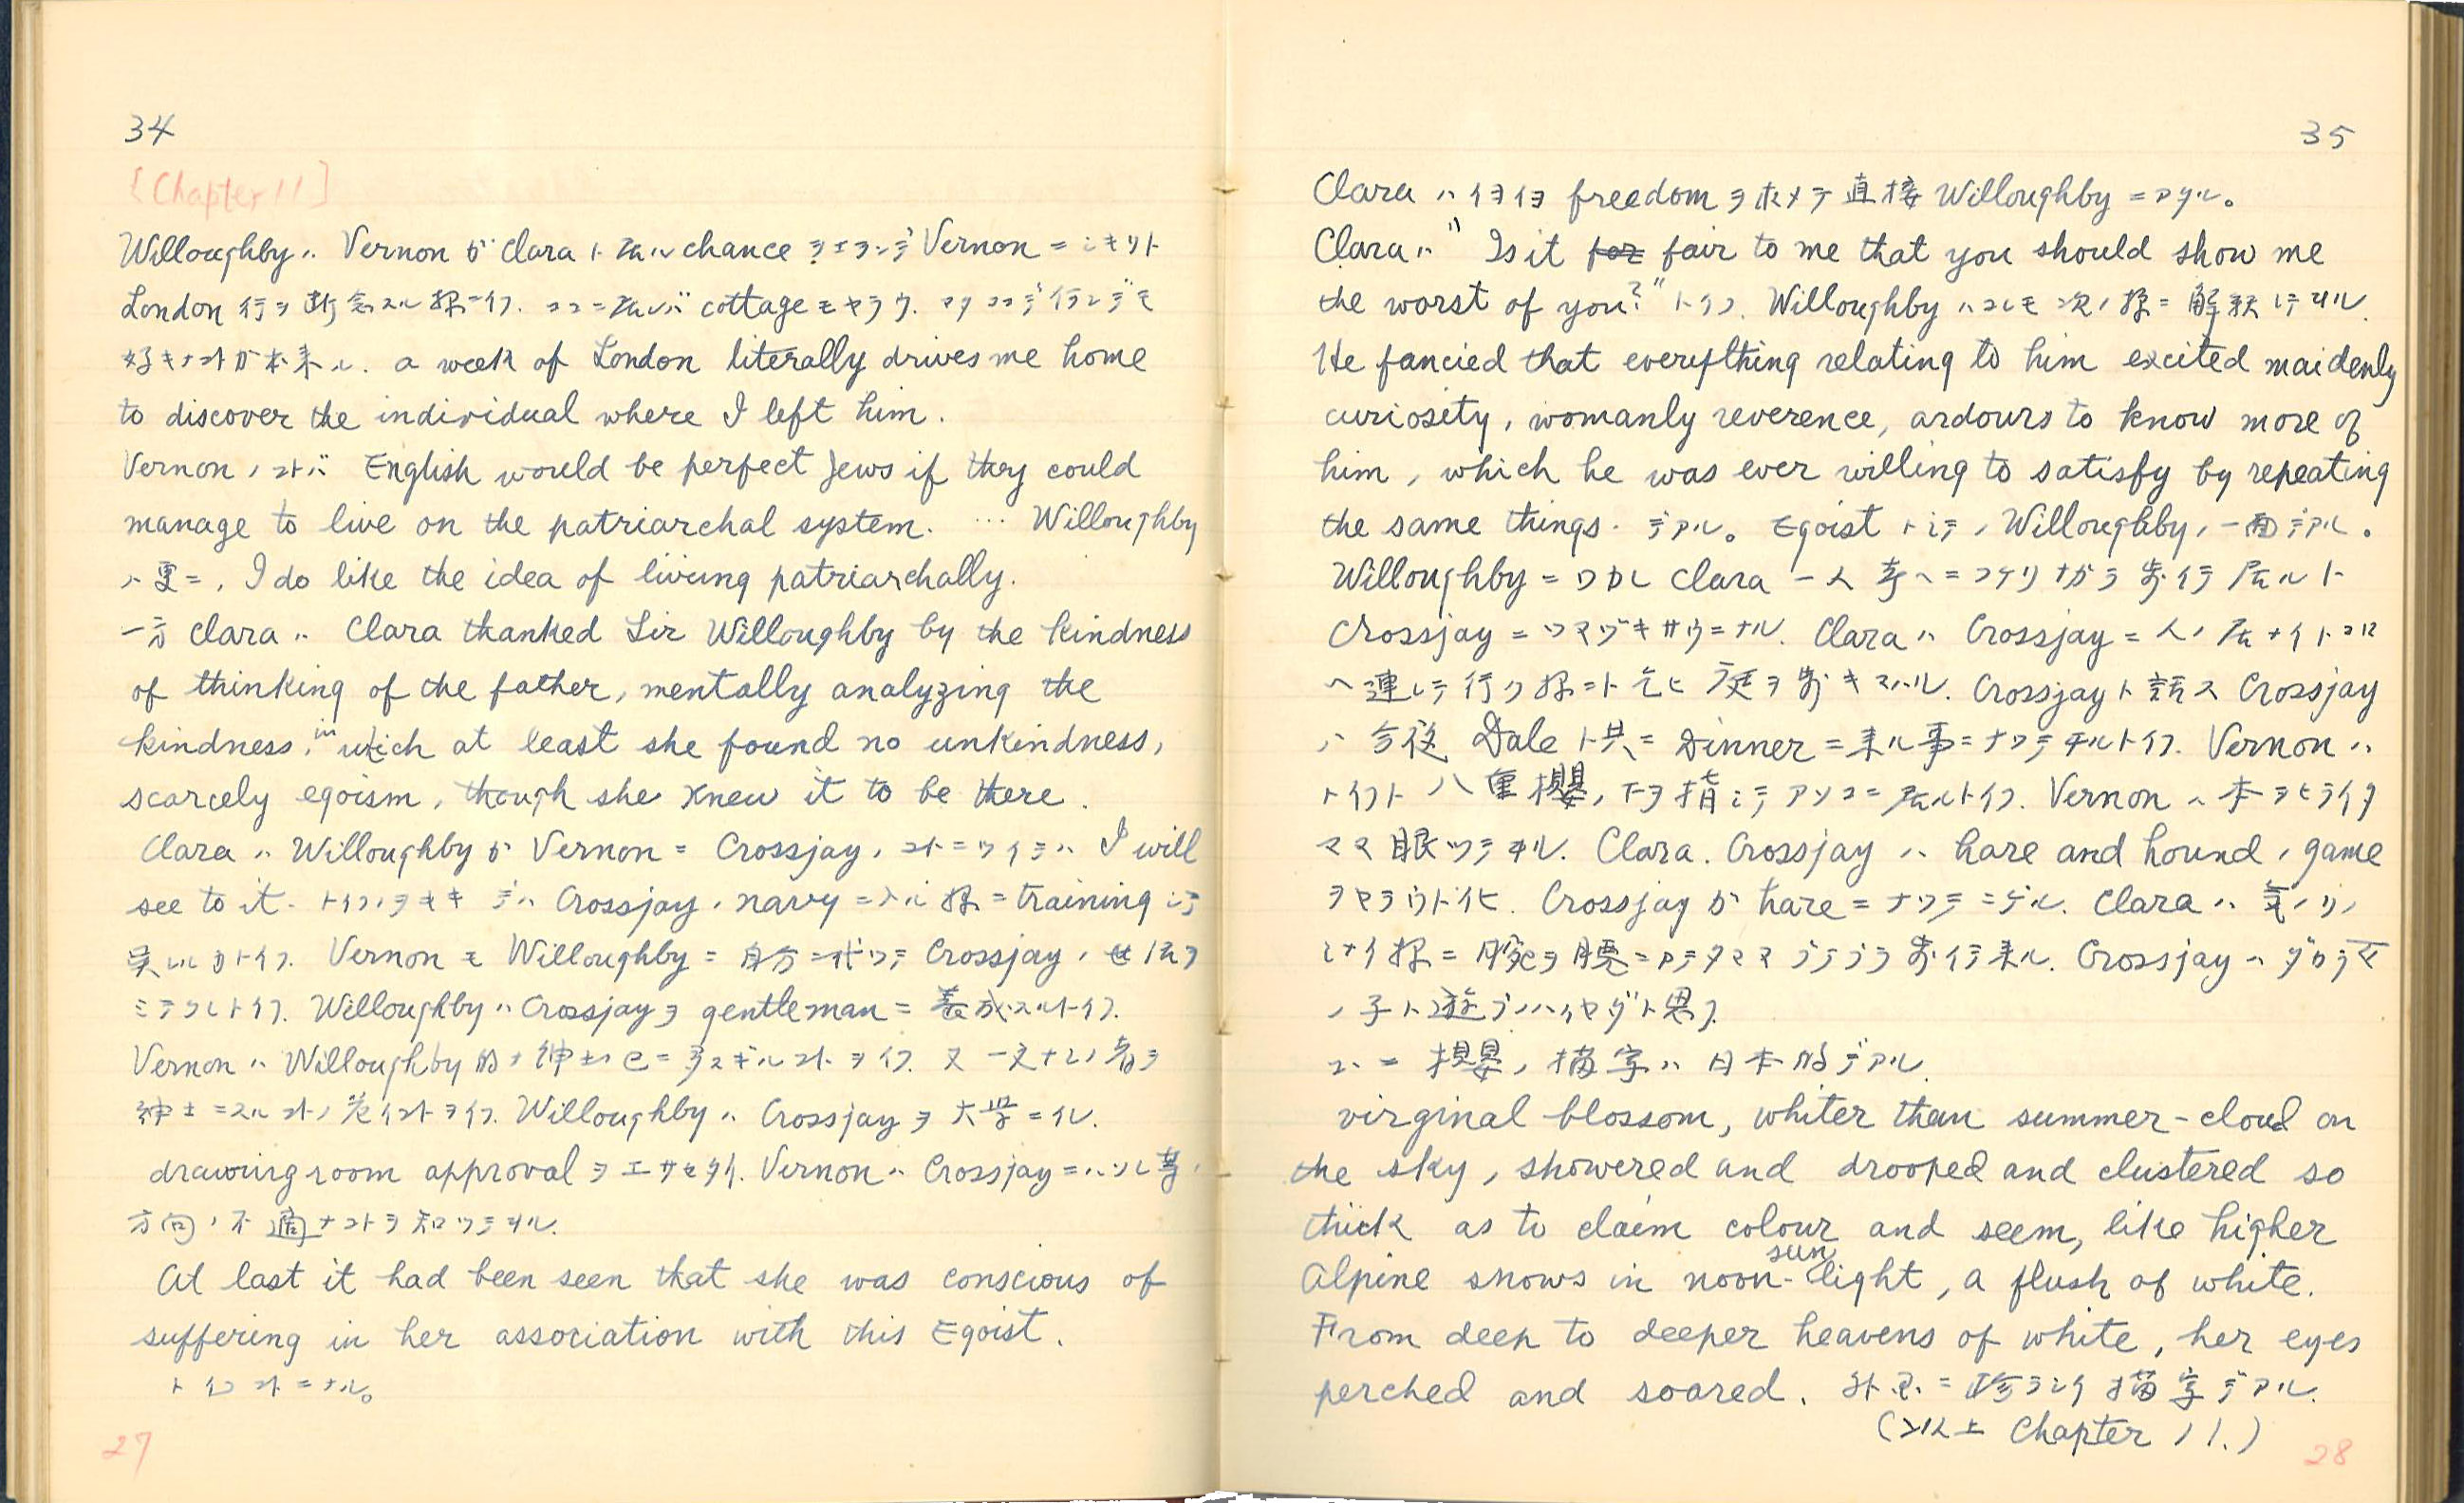 34
[Chapter 11]
Willoughby ハ Vernon ガ Clara ト 居ル chance ヲ エランデ Vernon ニ シキリト
London 行ヲ 断念スル様ニイフ. ココニ居レバ cottage モヤラウ. マタココデ行ンデモ
好キナコトガ出来ル. a week of London literally drives me home
to discover the individual where I left him.
Vernon ノ コトバ English would be perfect Jews if they could
manage to live on the patriarchal system. … Willoughby
ハ更ニ, I do like the idea of living patriarchally.
一方 Clara ハ Clara thanked Sir Willoughby by the kindness
of thinking of the father, mentally analyzing the
kindness, in which at least she found no unkindness,
scarcely egoism, though she knew it to be there.
Clara ハ Willoughby ガ Vernon ニ Crossjay ノ コトニツイテハ I will
see to it. トイフノヲキキ デハ Crossjay ノ navy ニ入ル様ニ training シテ
呉レルカトイフ. Vernon モ Willoughby ニ 自分ニ代ッテ Crossjay ノ世話ヲ
ミテクレトイフ. Willoughby ハ Crossjay ヲ gentleman ニ 養成スルトイフ.
Vernon ハ Willoughby 的ナ紳士 スギルコトヲイフ. 又一文ナシノ者ヲ
紳士ニスルコトノ危イコトヲイフ. Willoughby ハ Crossjay ヲ 大学ニイレ.
drawing room approval ヲエサセタイ. Vernon ハ Crossjay ニハソレ等ノ
方向ノ不適ナコトヲ知ッテヰル.
At last it had been seen that she was conscious of
suffering in her association with this Egoist.
トイフコトニナル。
27
35
Clara ハイヨイヨ freedom ヲホメテ直接 Willoughby ニアタル。
Clara ハ "Is it for fair to me that you should show me
the worst of you?" トイフ. Willoughby ハコレモ次ノ様ニ解釈シテヰル.
He fancied that everything relating to him excited maidenly
curiosity, womanly reverence, ardours to know more of
him, which he was ever willing to satisfy by repeating
the same things. デアル。 Egoist トシテノ Willoughby ノ一面デアル。
Willoughby ニワカレ Clara 一人考ヘニフケリナガラ歩イテ居ルト
Crossjay ニツマヅキサウニナル. Clara ハ Crossjay ニ人ノ居ナイトコロ
ヘ連レテ行ク様ニト乞ヒ庭ヲ歩キマハル. Crossjay ト話ス Crossjay
ハ今夜 Dale ト共ニ Dinner ニ来ル事ニナッテヰルトイフ. Vernon ハ
トイフト八重櫻ノ下ヲ指シテアソコニ居ルトイフ. Vernon ハ本ヲヒライタ
ママ眠ッテヰル. Clara. Crossjay ハ hare and hound ノ game
ヲヤラウト化. Crossjay ガ hare ニナッテニゲル. Clara ハ気ノリノ
シナイ様ニ腕ヲ腰ニアテタママブラブラ歩イテ来ル. Crossjay ハダカラ女
ノ子ト遊ブノハイヤダト思フ.
ココニ櫻ノ描写ハ日本的デアル.
virginal blossom, whiter than summer-cloud on
the sky, showered and drooped and clustered so
thick as to claim colour and seem, like higher
Alpine snows in noon-sunlight, a flush of white.
From deep to deeper heavens of white, her eyes
perched and soared. 珍ラシイ描写デアル.
(以上 Chapter 11.)
28